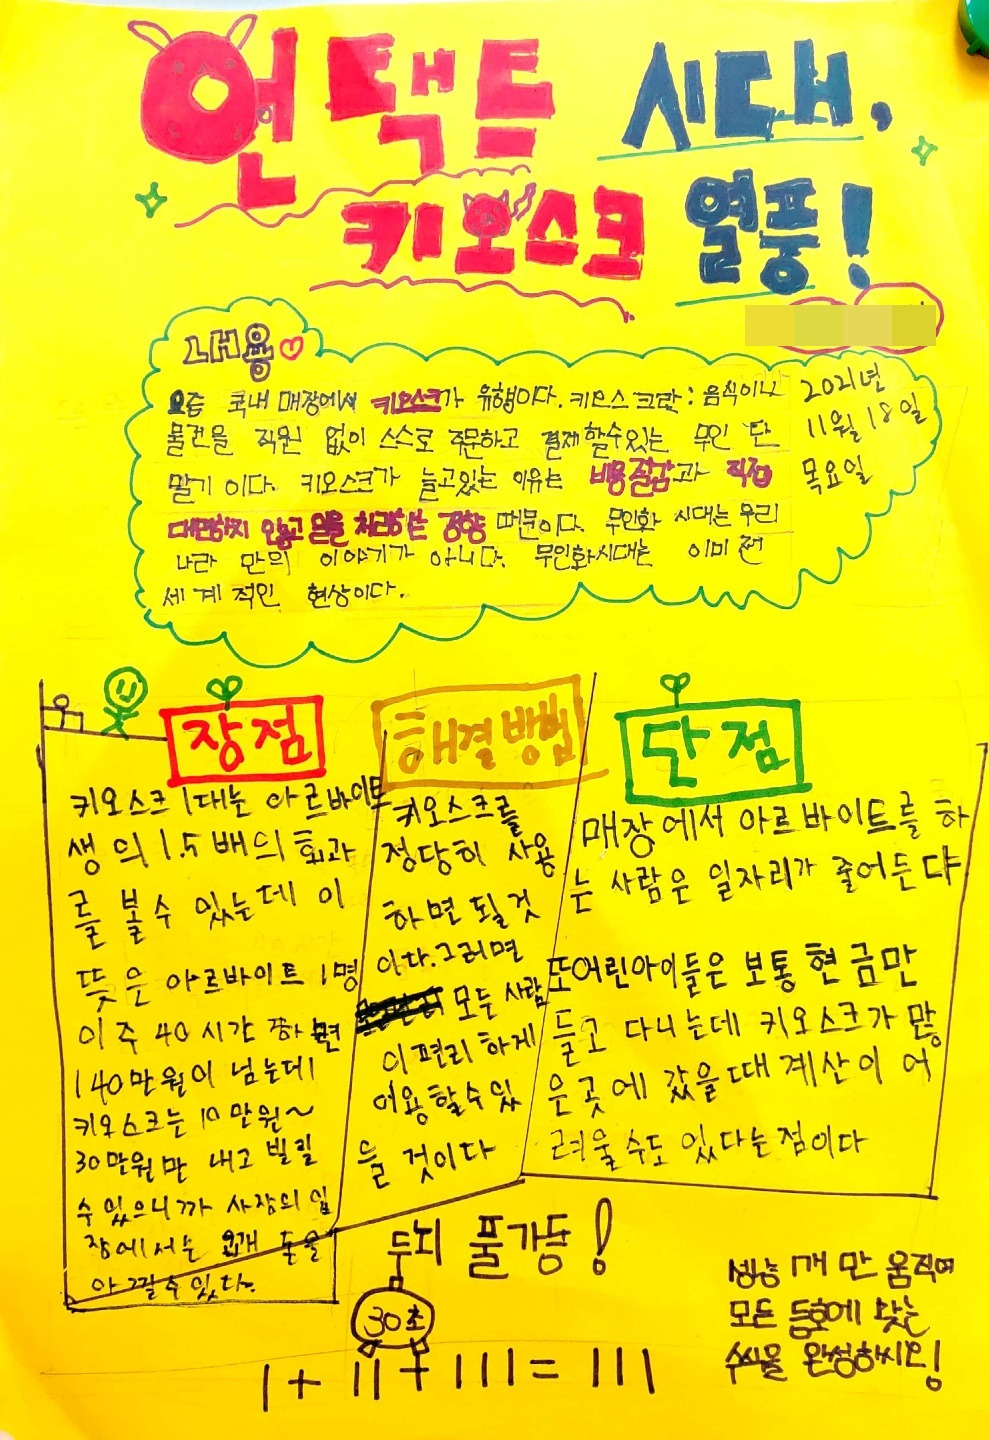 언택트 시대,
키오스크 열풍!
내용
요즘 국내 매장에서 키오스크가 유행이다. 키오스크란: 음식이나
물건을 직원 없이 스스로 주문하고 결제할수있는 무인 단
말기 이다. 키오스크가 늘고있는 이유는 비용절감과 직접
대면하지 않고 일을 처리하는 경향 때문이다. 무인화 시대는 우리
나라 만의 이야기가 아니다. 무인화시대는 이미 전
세계적인 현상이다.
2021년
11월 18일
목요일
장점
키오스크 1대는 아르바이트
생의 1.5배의 효과
를 볼수 있는데 이
뜻은 아르바이트 1명
이 주 40시간 하면
140만원이 넘는데
키오스크는 10만원~
30만원만 내고 빌릴
수 있으니까 사장의 입
장에서는 돈을
아낄수있다.
해결방법
키오스크를
정당히 사용
하면 될것
이다.그러면
모두 사람
이 편리하게
이용할수있
을 것이다
단점
매장에서 아르바이트를 하
는 사람은 일자리가 줄어든다
또어린아이들은 보통 현금만
들고 다니는데 키오스크가 많
은곳에 갔을때 계산이 어
려울수도 있다는점이다
두뇌 풀가동!
30초
1+11+111=111
성냥 1개만 움직여
모든 등호에 맞는
수식을 완성하시오!